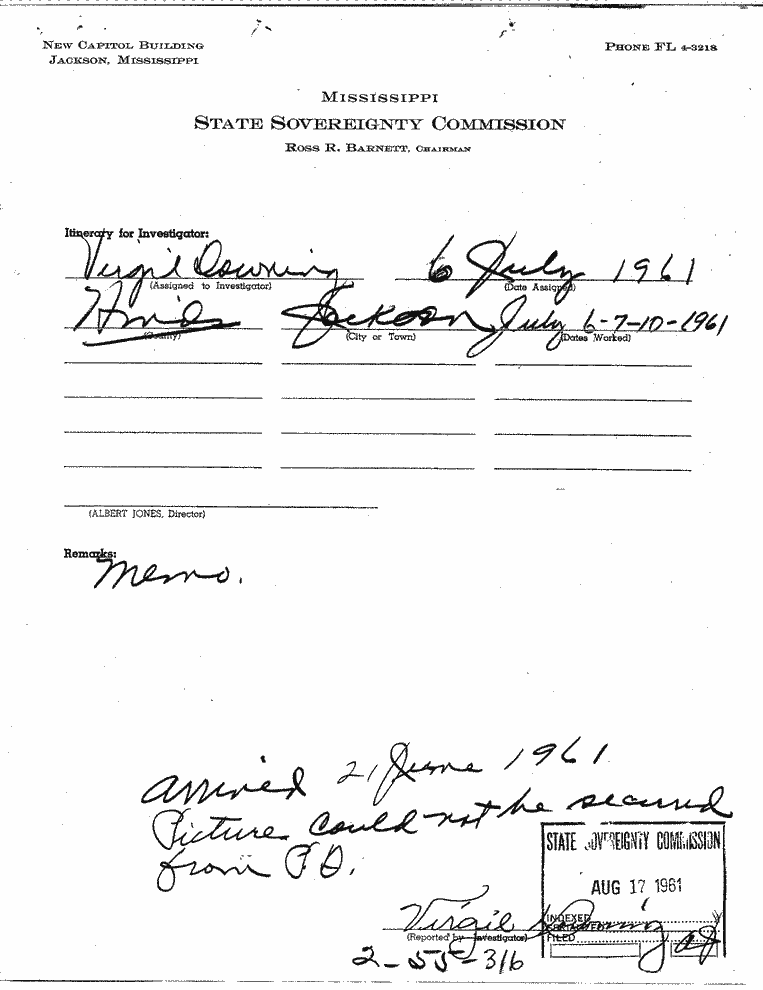 NEW CAPITOL BUILDING
JACKSON, MISSISSIPPI
PHONE FL 4-3218
MISSISSIPPI
STATE SOVEREIGNTY COMMISSION
ROSS R. BARNETT, CHAIRMAN
Itinerary for Investigator:
Virgil Downing 6 July 1961
(Assigned to Investigator) (Date Assigned)
Hinds Jackson July 6-7-10-1961
(County) (City or Town) (Dates Worked)
(ALBERT JONES, Director)
Remarks:
Memo.
arrived 21 June 1961
Picture could not be secured
from P.D.
STATE SOVEREIGNTY COMMISSION
AUG 17 1961
INDEXED
Virgil Downing
FILED
(Reported by Investigator)
2-55-3/6